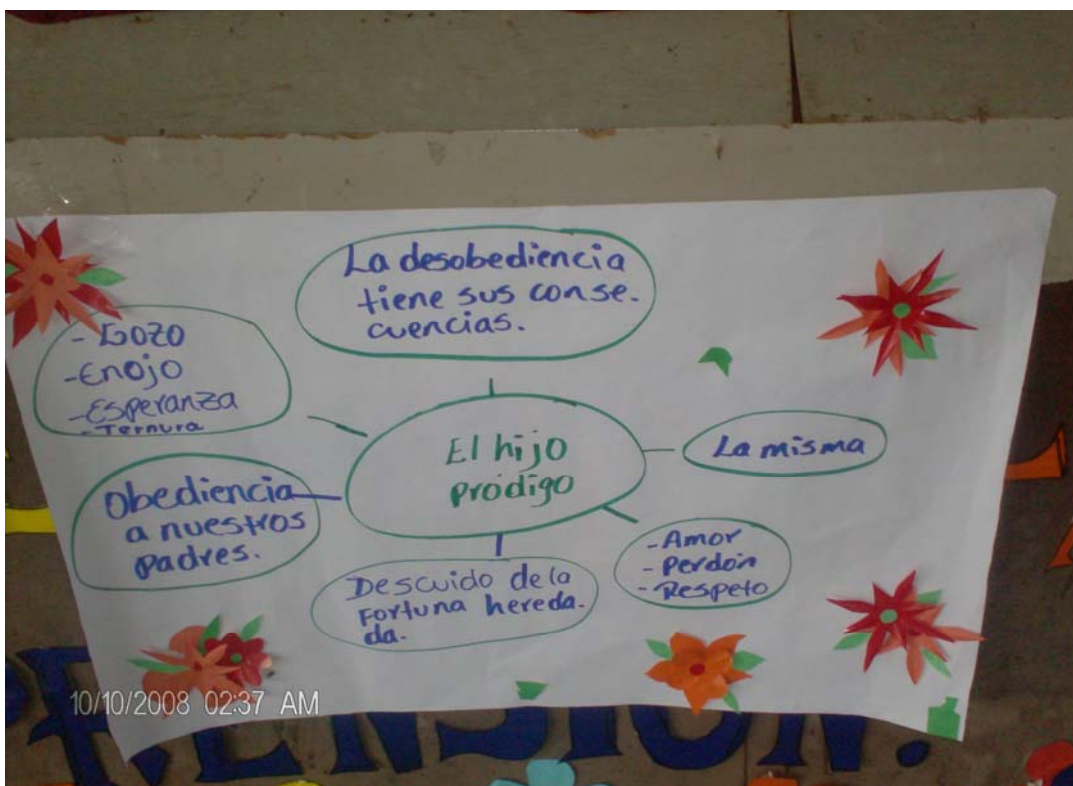 La desobediencia
tiene sus conse.
cuencias.
- Gozo
- Enojo
- Esperanza
- Ternura
El hijo
prodigo
La misma
Obediencia
a nuestros
padres.
- Amor
- Perdón
- Respeto
Descuido de la
Fortuna hereda.
da.
10/10/2008 02:37 AM
RENSION.